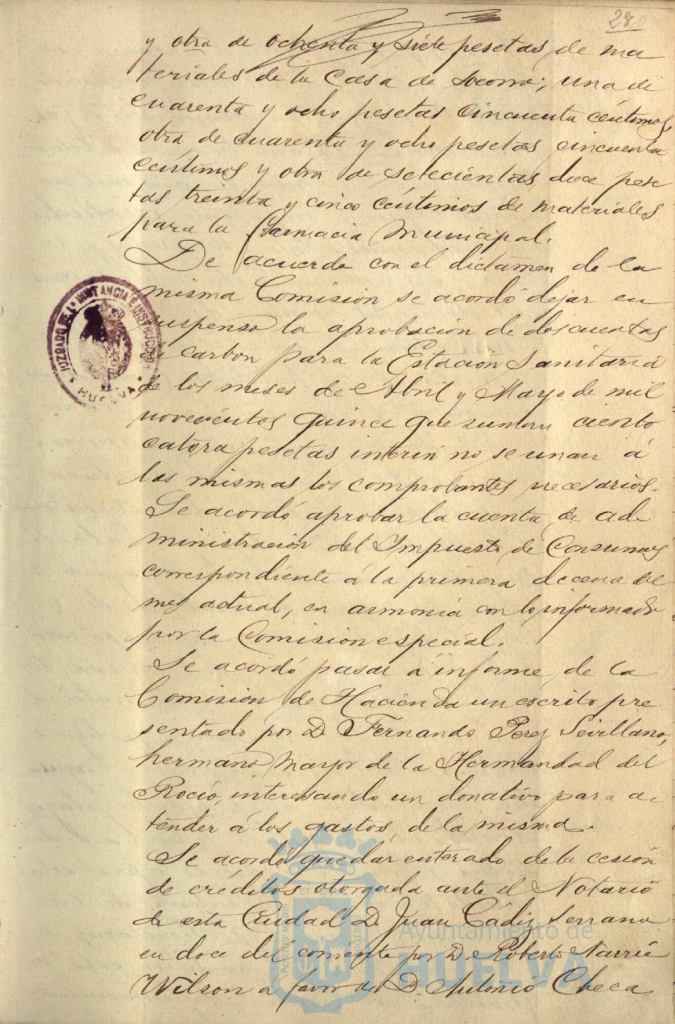 28
y otra de ochenta y siete pesetas de ma
teriales de la Casa de Socorro; una de
cuarenta y ocho pesetas cincuenta céntimos,
otra de cuarenta y ocho pesetas cincuenta
céntimos y otra de setecientas doce pese
tas treinta y cinco céntimos de materiales
para la Farmacia Municipal.
De acuerdo con el dictamen de la
misma Comisión se acordó dejar en
suspenso la aprobación de dos cuentas
de carbon para la Estación Sanitaria
de los meses de Abril y Mayo de mil
novecientos quince que suman ciento
catorce pesetas interin no se unan á
las mismas los comprobantes necesarios.
Se acordó aprobar la cuenta de ad
ministración del Impuesto de Consumos
correspondiente á la primera decena del
mes actual, en armonia con lo informado
por la Comisión especial.
Se acordó pasar a informe de la
Comisión de Hacienda un escrito pre
sentado por D. Fernando Perez Sevillano,
hermano mayor de la Hermandad del
Rocío, interesando un donativo para a
tender á los gastos de la misma.
Se acordó quedar enterado de la cesión
de créditos otorgada ante el Notario
de esta Ciudad D. Juan Cádiz Serrano
en doce del corriente por D. Roberto
Wilson a favor de D. Antonio Checa
JUZGADO DE 1ª INSTANCIA É INSTRUCCION
HUELVA
Ayuntamiento de
HUELVA